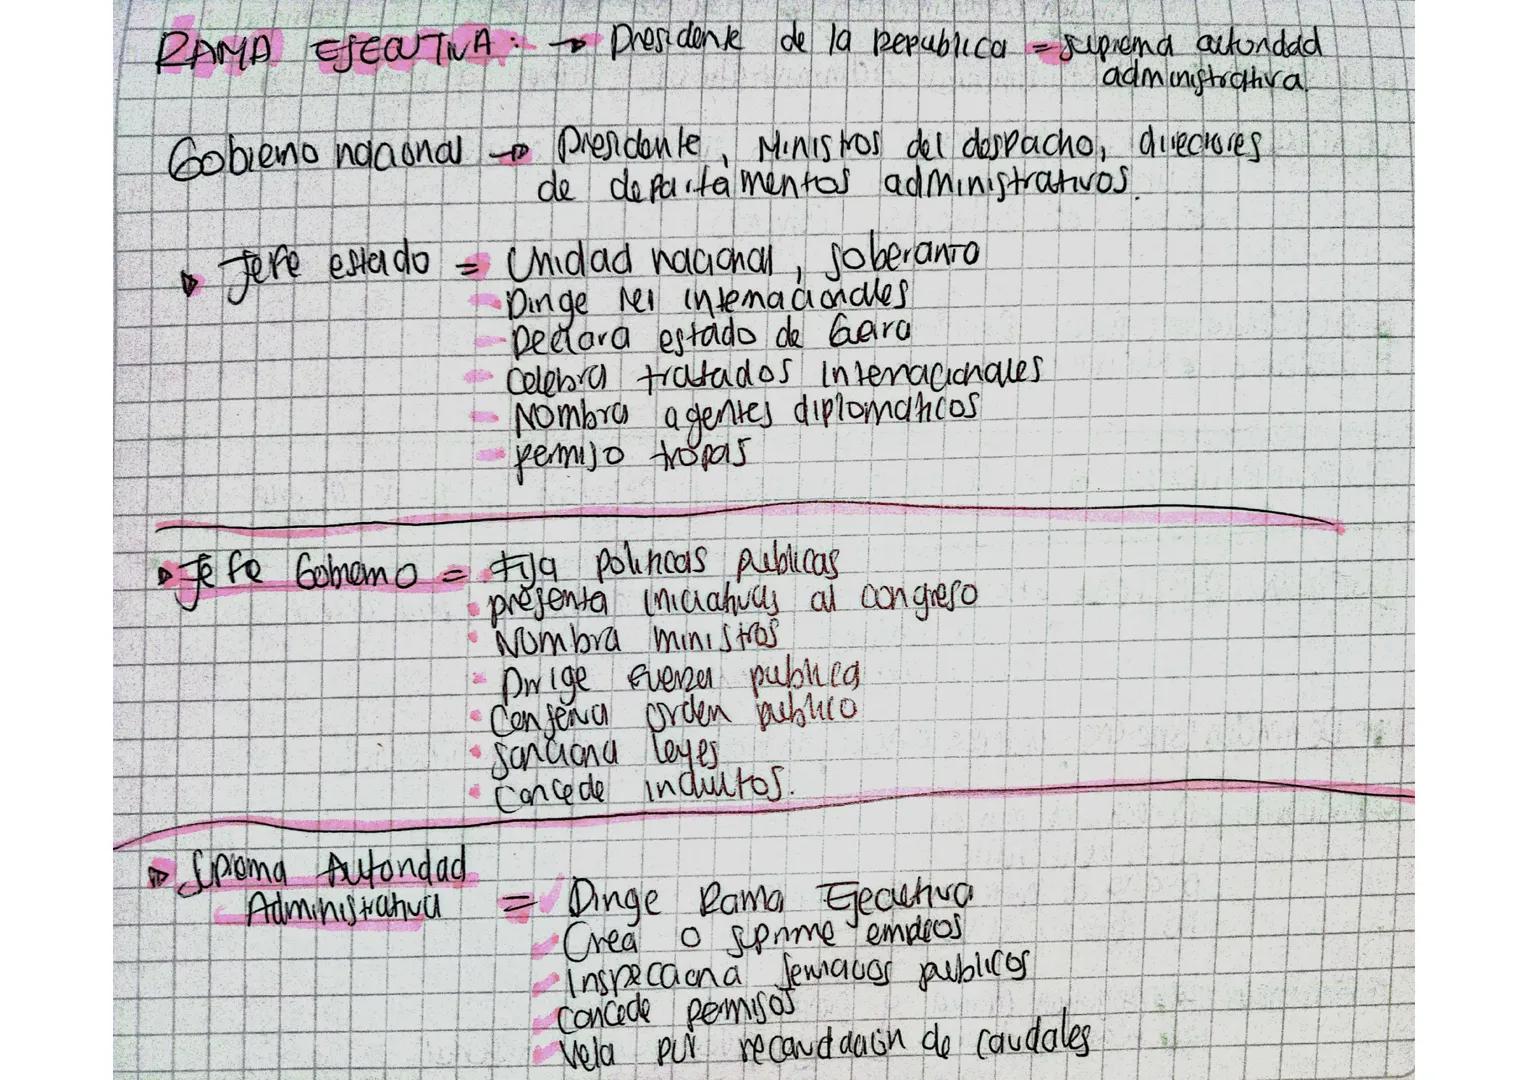 RAMA EJECUTIVA: → Presidente de la Republica = suprema autoridad
administrativa.
Gobierno nacional → Presidente, Ministros del despacho, directores
de departamentos administrativos.
Jefe estado = Unidad nacional, soberanio
- Dirige rel internacionales
- Declara estado de Guerra
- Celebra tratados internacionales
- Nombra agentes diplomaticos
- permiso tropas
Jefe Gobierno = • Fija politicas publicas
• presenta iniciativas al congreso
• Nombra ministros
• Dirige fuerza publica
• Conserva orden publico
• Sanciona leyes
• Concede indultos.
Suprema Autoridad
Administrativa = Dirige Rama Ejecutiva
Crea o suprime empleos
Inspecciona servicios publicos
Concede permisos
Vela por recaudación de caudales